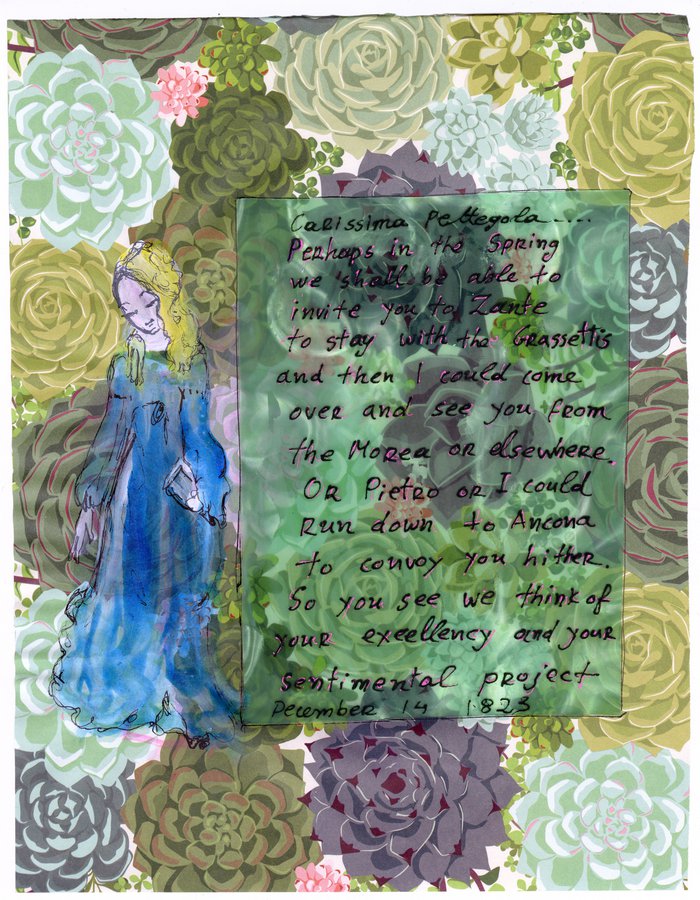 Carissima Pettegola.....
Perhaps in the Spring
we shall be able to
invite you to Zante
to stay with the Grassettis
and then I could come
over and see you from
the Morea or elsewhere.
Or Pietro or I could
Run down to Ancona
to convoy you hither.
So you see we think of
your exellency and your
sentimental project
December 14 1823